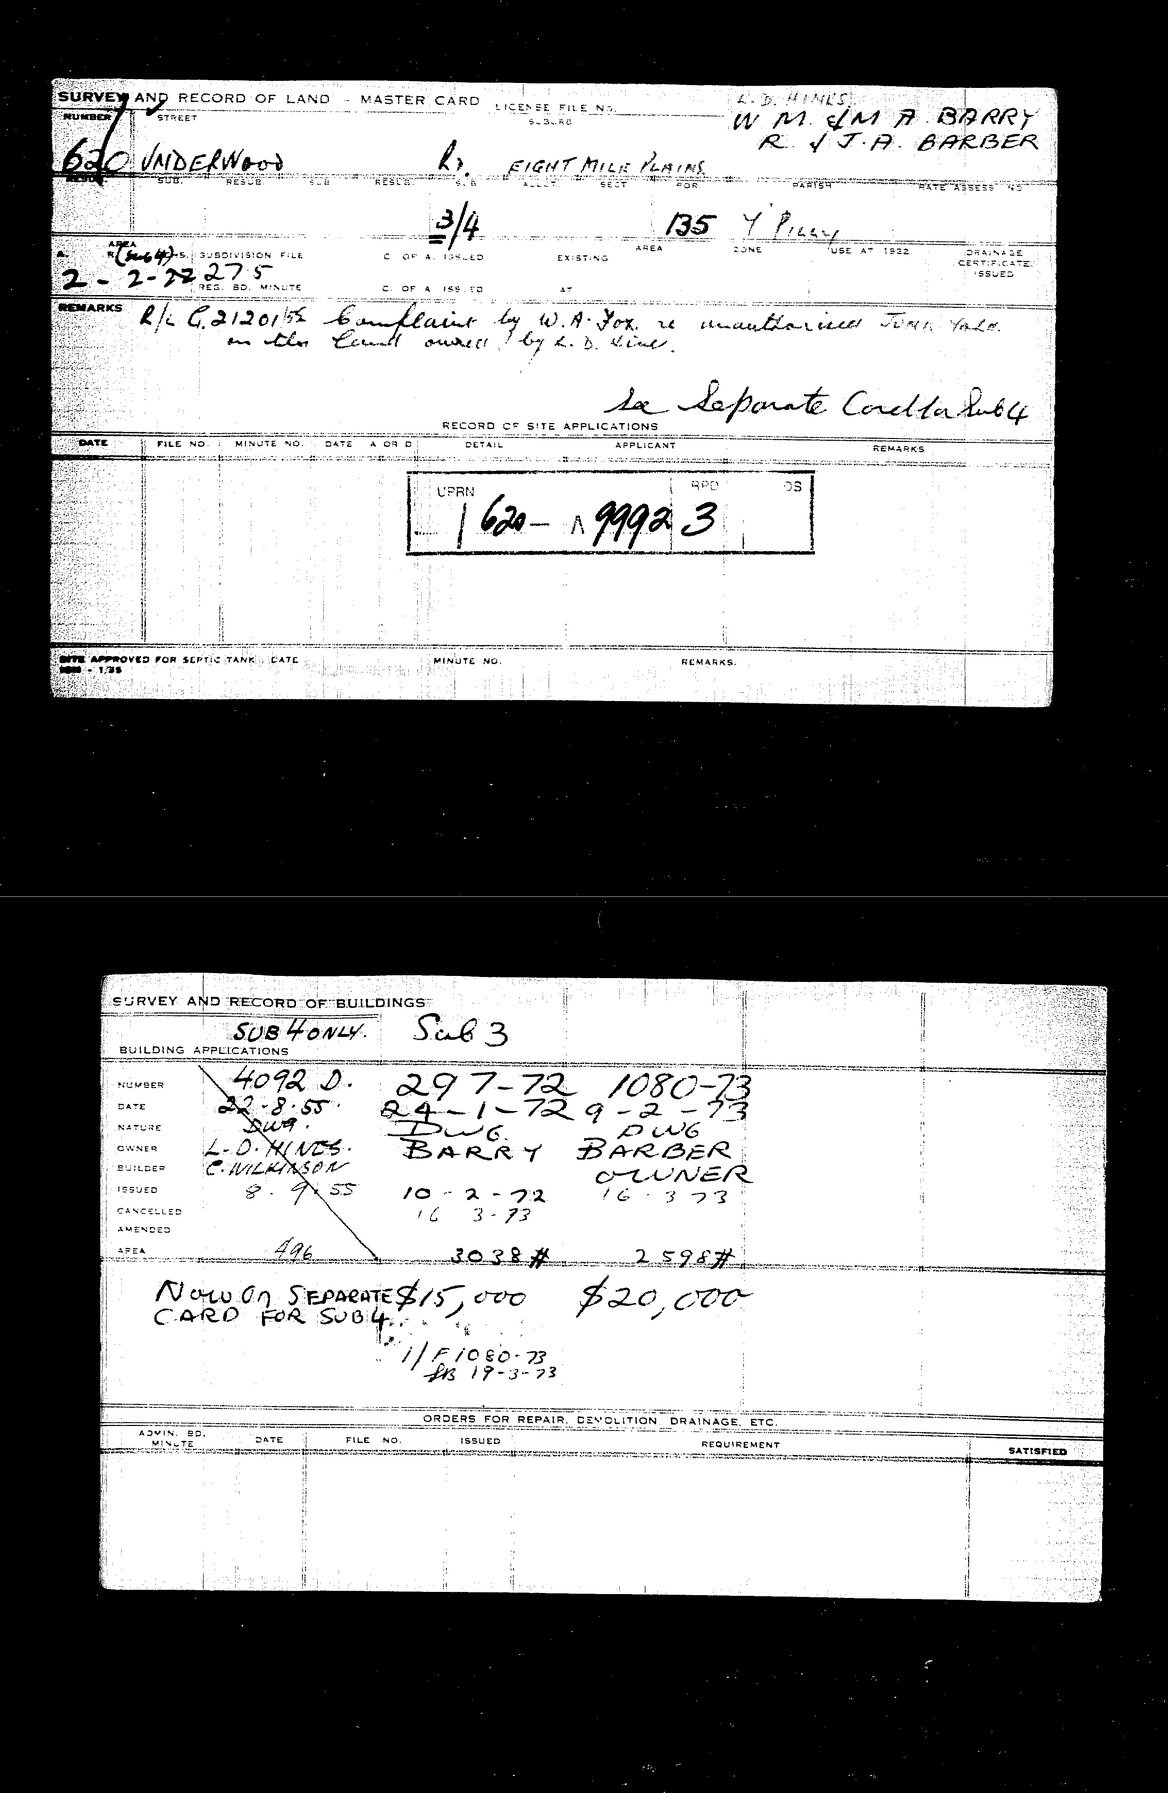 SURVEY AND RECORD OF LAND - MASTER CARD LICENSE FILE NO.
L. D. HINES
W M. & M A. BARRY
R. & J. A. BARBER
NUMBER STREET SUBURB
620 UNDERWOOD Rd. EIGHT MILE PLAINS.
SUB. RESUB. SUB RESUB. SUB ALLOT. SECT POR PARISH RATE ASSESS NO
3/4 135 Y'Pilly
AREA
A. R. (Sub 4) S. SUBDIVISION FILE C OF A. ISSUED EXISTING AREA ZONE USE AT 1932 DRAINAGE CERTIFICATE ISSUED
2 - 2 - 22 275
REG. BD. MINUTE C. OF A ISSUED AT
REMARKS R/L G.21201/55 Complaint by W. A. Fox. re unauthorised Junk Yard
on the land owned by L. D. Hines.
See Separate Card for Sub 4
RECORD OF SITE APPLICATIONS
DATE FILE NO. MINUTE NO. DATE A OR D DETAIL APPLICANT REMARKS
UPRN RPD OS
620- 9992 3
SITE APPROVED FOR SEPTIC TANK: DATE MINUTE NO. REMARKS.
SURVEY AND RECORD OF BUILDINGS
SUB 4 ONLY. Sub 3
BUILDING APPLICATIONS
NUMBER 4092 D. 297-72 1080-73
DATE 22-8-55. 24-1-72 9-2-73
NATURE DWG. DWG. DWG
OWNER L. D. HINES. BARRY BARBER
BUILDER C. WILKINSON OWNER
ISSUED 8. 9. 55 10-2-72 16-3-73
CANCELLED 16 3-73
AMENDED
AREA 496 3038# 2598#
NOW ON SEPARATE $15,000 $20,000
CARD FOR SUB 4.
1/F 1080-73
19-3-73
ORDERS FOR REPAIR, DEMOLITION, DRAINAGE, ETC.
ADMIN. BD. MINUTE DATE FILE NO. ISSUED REQUIREMENT SATISFIED